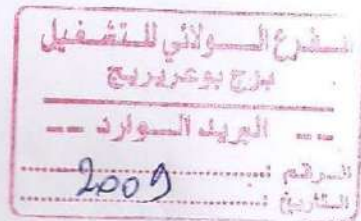 الفرع الولائي للتشغيل
برج بوعريريج
البريد الوارد
الرقم : 2009
التاريخ :